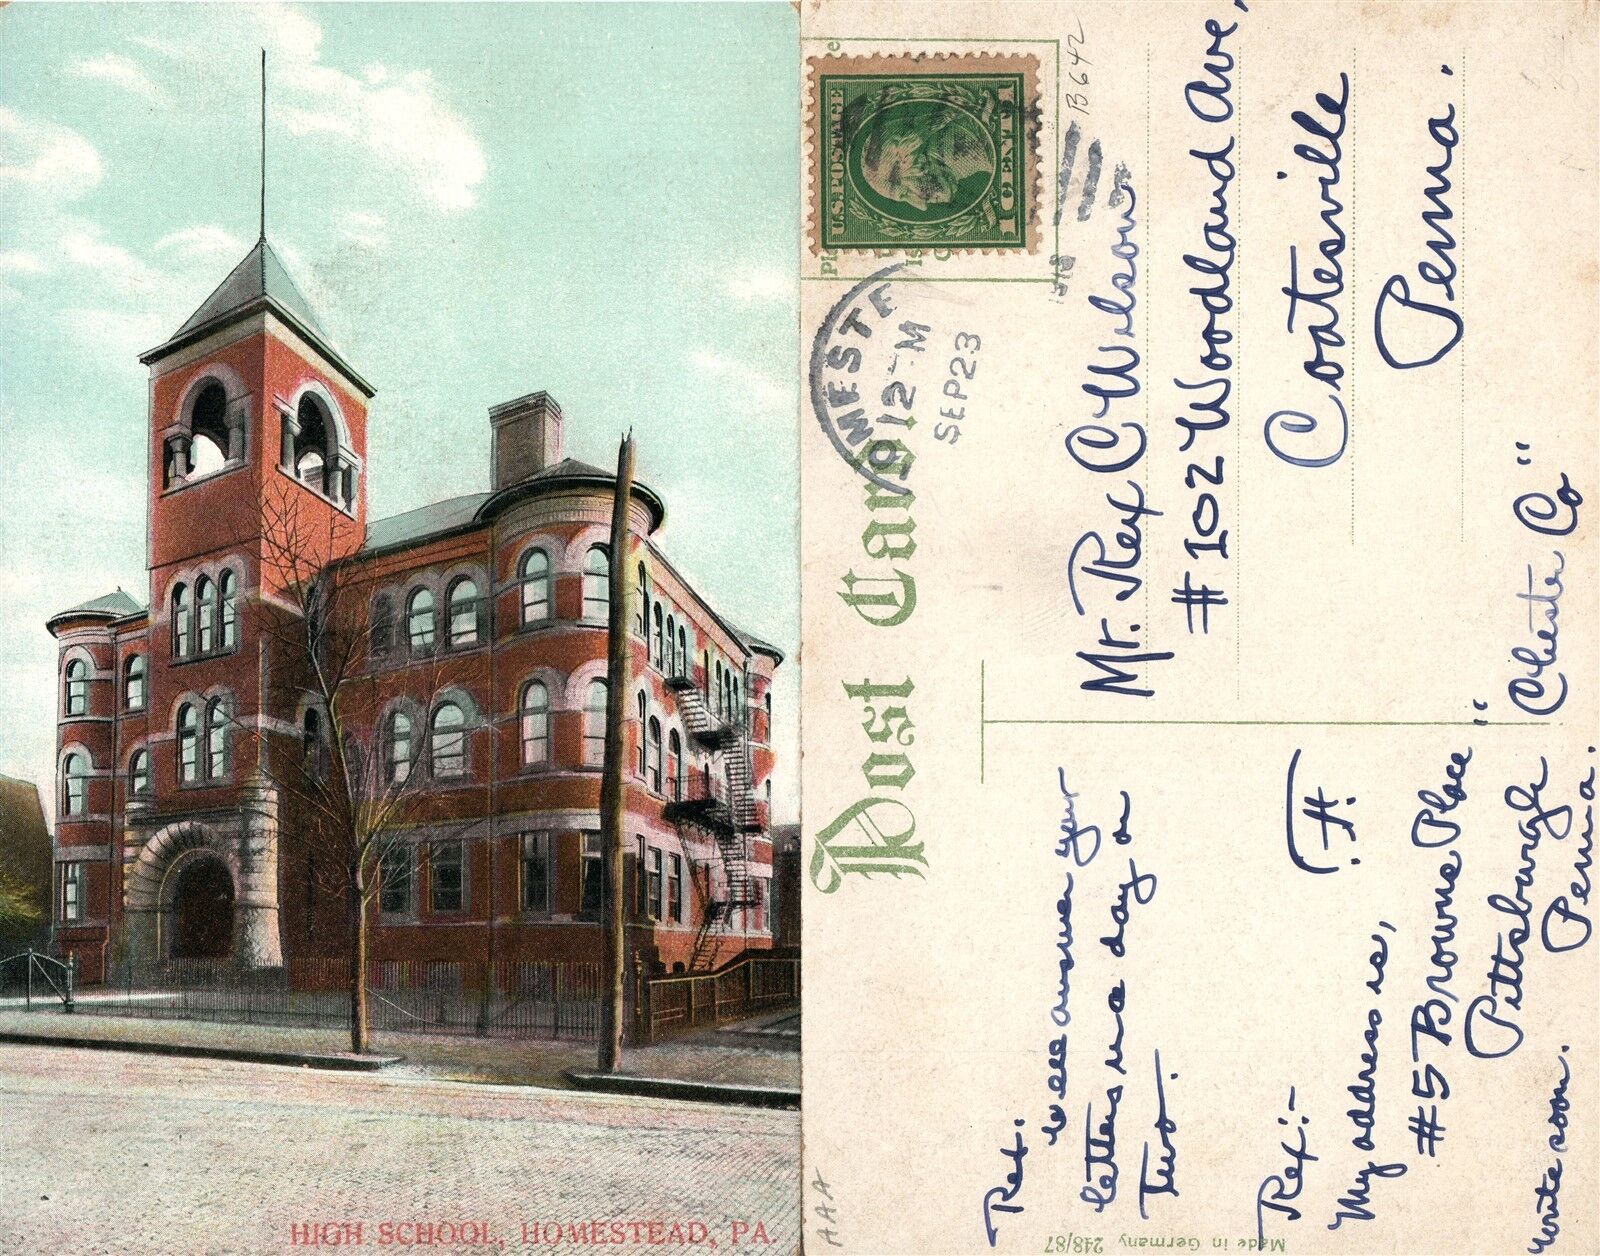 HIGH SCHOOL, HOMESTEAD, PA.
Post Card
U.S. POSTAGE
1 CENT 1
MESTE
12-M
SEP 23
B642
Mr. Rex C Wilson
#102 Woodland Ave,
Coatesville
Penna.
"Chester Co"
Rex.
Will answer your
letters in a day or
two.
F.H.
Rex:-
My address is,
#5 Browns Place
Pittsburgh
Penna.
Write soon.
AAA
Made in Germany 248/87